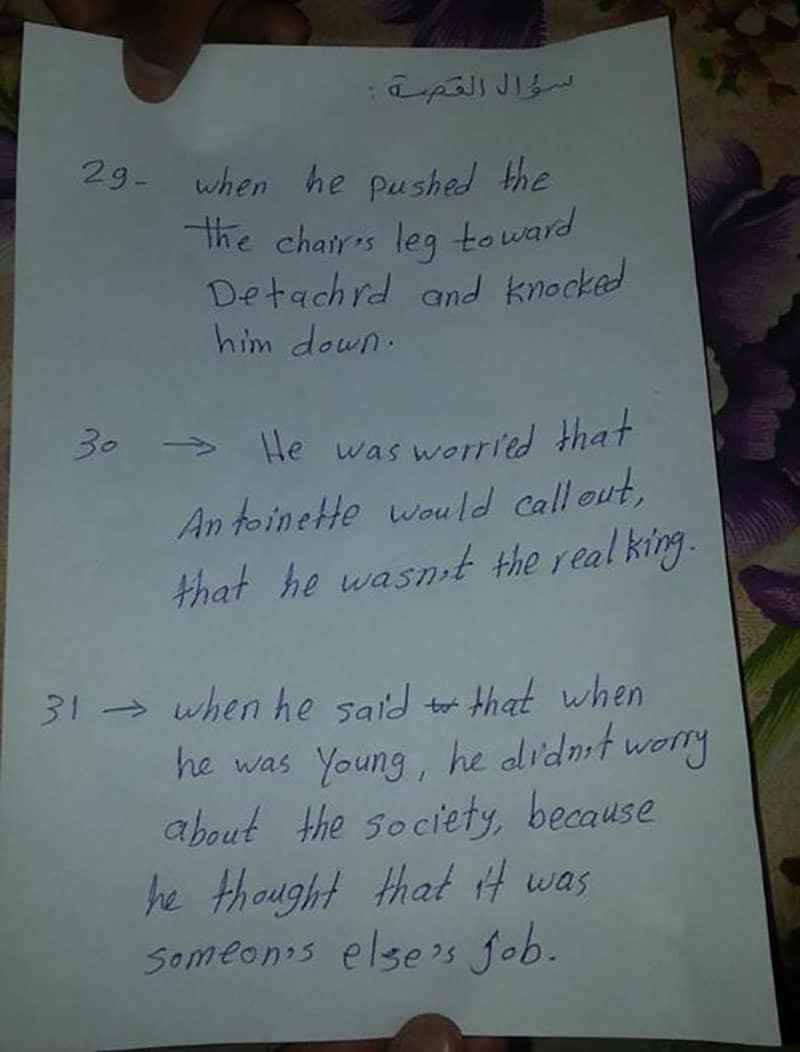 سؤال القصة :
29- when he pushed the
the chair's leg toward
Detachrd and knocked
him down.
30 → He was worried that
Antoinette would call out,
that he wasn't the real king.
31 → when he said to that when
he was young, he didn't worry
about the society, because
he thought that it was
someon's else's job.